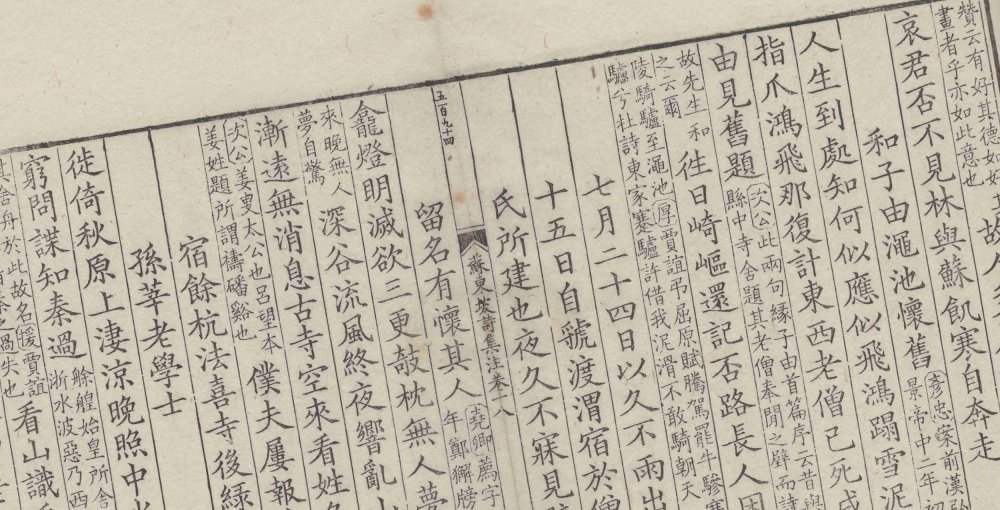 贊云有好其德如好
畫者乎亦如此意也
哀君否不見林與蘇飢寒自奔走
和子由澠池懷舊
彥忠案前漢弘
景帝中二年初
人生到處知何似應似飛鴻蹋雪泥
指爪鴻飛那復計東西老僧已死成
由見舊題
次公此兩句緣子由首篇序云昔與
縣中寺舍題其老僧奉閑之壁而詩
故先生和
之云爾
往日崎嶇還記否路長人困
陵騎驢至澠池厚賈誼弔屈原賦騰駕罷牛驂蹇
驢兮杜詩東家蹇驢許借我泥滑不敢騎朝天
七月二十四日以久不雨出
十五日自虢渡渭宿於僧
氏所建也夜久不寐見
蘇東坡詩集注卷二八
五百九十四
留名有懷其人
堯卿薦字
年鄭獬榜
龕燈明滅欲三更攲枕無人夢
來晚無人
夢自驚
深谷流風終夜響亂
漸遠無消息古寺空來看姓
次公姜叟太公也呂望本
姜姓題所謂禱磻谿也
僕夫屢報
宿餘杭法喜寺後綠
孫莘老學士
徙倚秋原上淒涼晚照中
窮問諜知秦過
艅艎始皇所舍
浙水波惡乃西
看山識
其舍舟於此故名援賈誼
秦之過失也